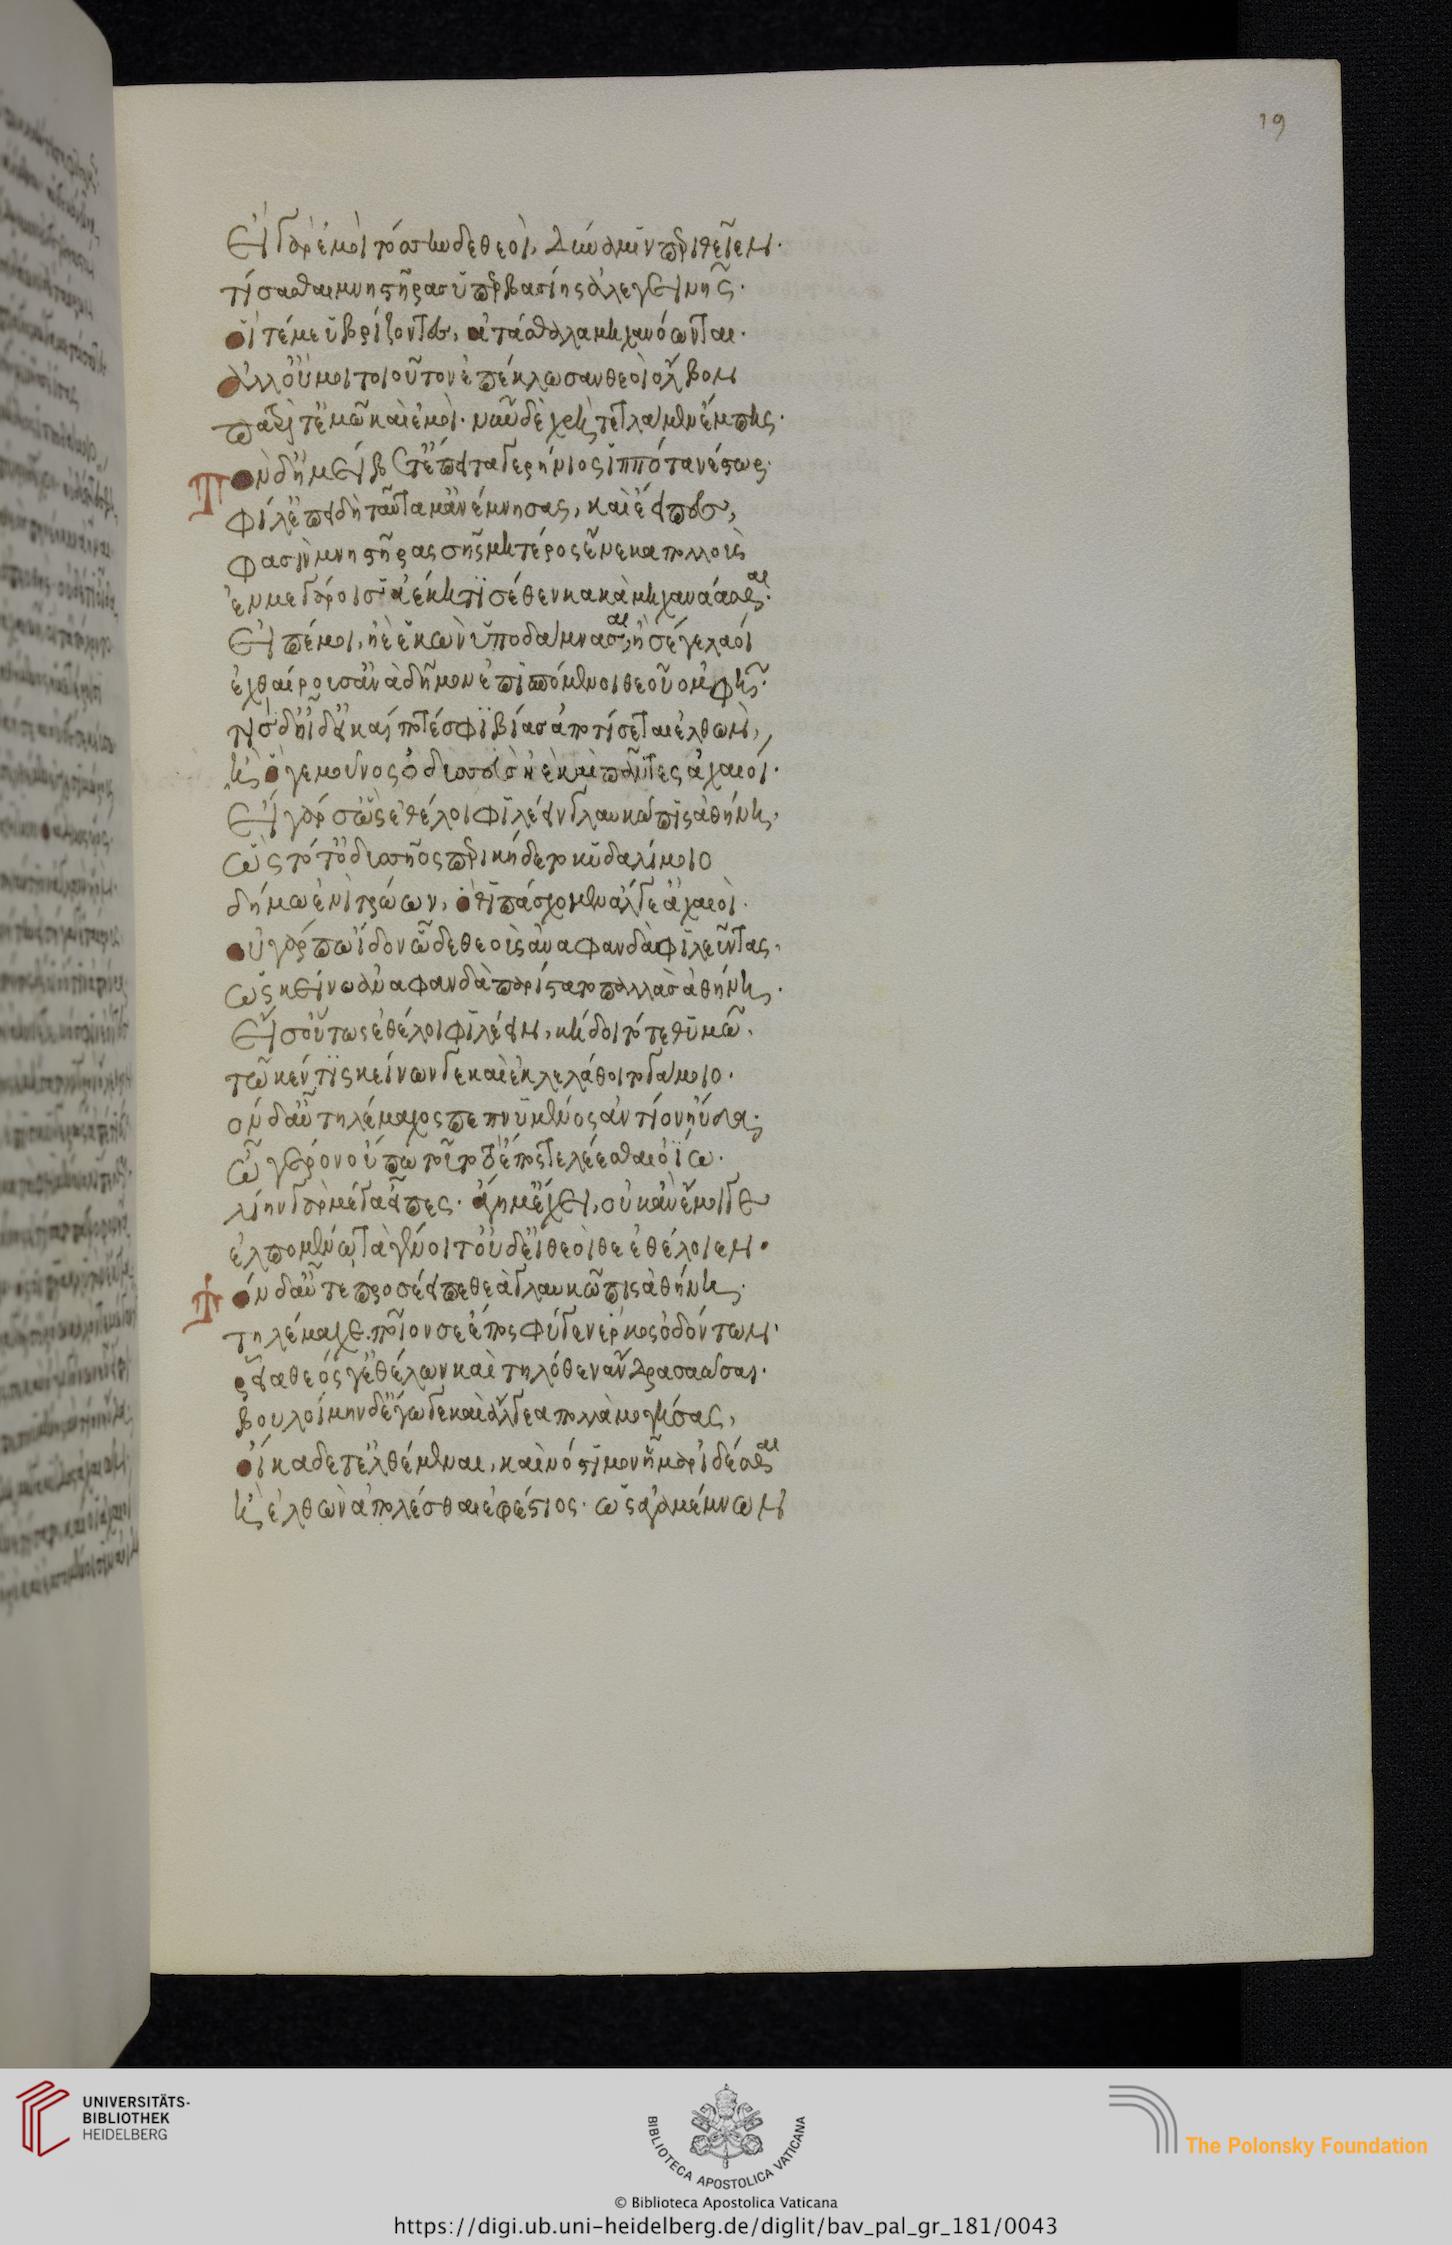 19
Εἰ γὰρ ἐμοὶ τόσηνδε θεοὶ, δύναμιν περιθεῖεν·
τίσασθαι μνηστῆρας ὑπερβασίης ἀλεγεινῆς·
οἵ τέ με ὑβρίζοντες, ἀτάσθαλα μηχανόωνται·
ἀλλ' οὔ μοι τοιοῦτον ἐπέκλωσαν θεοὶ ὄλβον
πατρί τ' ἐμῶ καὶ ἐμοί· νῦν δὲ χρὴ τετλάμεν ἔμπης·
Τὸν δ' ἠμείβετ' ἔπειτα γερήνιος ἱππότα νέστωρ·
φίλ' ἐπεὶ δὴ ταῦτά μ' ἀνέμνησας, καὶ ἔειπες,
φασὶν μνηστῆρας σῆς μητέρος εἵνεκα πολλοὺς
ἐν μεγάροισ' ἀέκητι σέθεν κακὰ μηχανάασθαι·
Εἰπέ μοι, ἠὲ ἑκὼν ὑποδάμνασαι, ἦ σέ γε λαοί
ἐχθαίρουσ' ἀνὰ δῆμον ἐπισπόμενοι θεοῦ ὀμφῆ·
τίς δ' οἶδ' εἰ καί ποτέ σφι βίας ἀποτίσεται ἐλθών,
ἢ ὅγε μοῦνος ὀδυσσεὺς ἢ καὶ πάντες ἀχαιοί·
Εἰ γάρ σ' ὣς ἐθέλοι φιλέειν γλαυκῶπις ἀθήνη·
ὡς τότ' ὀδυσσῆος περικήδετο κυδαλίμοιο
δήμω ἐνὶ τρώων, ὅθι πάσχομεν ἄλγε' ἀχαιοί·
οὐ γάρ πω ἴδον ὧδε θεοὺς ἀναφανδὰ φιλεῦντας·
ὡς κείνω ἀναφανδὰ παρίστατο παλλὰς ἀθήνη·
Εἴ σ' οὕτως ἐθέλοι φιλέειν, κήδοιτό τε θυμῶ·
τῶ κέν τις κείνων γε καὶ ἐκλελάθοιτο γάμοιο·
ὸν δ' αὖ τηλέμαχος πεπνυμένος ἀντίον ηὔδα·
ὦ γέρον οὔπω τοῦτο ἔπος τελέεσθαι ὀΐω·
λίην γὰρ μέγα εἶπες· ἄγη μ' ἔχει, οὐκ ἂν ἔμοιγε
ἐλπομένω τὰ γένοιτ' οὐδ' εἰ θεοὶ θε ἐθέλοιεν·
Τὸν δ' αὖτε προσέειπε θεὰ γλαυκῶπις ἀθήνη·
τηλέμαχε ποῖόν σε ἔπος φύγεν ἕρκος ὀδόντων·
ῥεῖα θεός γ' ἐθέλων καὶ τηλόθεν ἄνδρα σαώσαι·
βουλοίμην δ' ἔγωγε καὶ ἄλγεα πολλὰ μογήσας,
οἴκαδέ τ' ἐλθέμεναι, καὶ νόστιμον ἦμαρ ἰδέσθαι
ἢ ἐλθὼν ἀπολέσθαι ἐφέστιος· ὡς ἀγαμέμνων
UNIVERSITÄTS-
BIBLIOTHEK
HEIDELBERG
BIBLIOTECA APOSTOLICA VATICANA
© Biblioteca Apostolica Vaticana
The Polonsky Foundation
https://digi.ub.uni-heidelberg.de/diglit/bav_pal_gr_181/0043